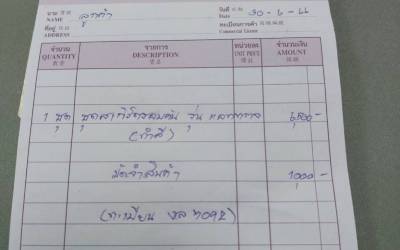 นาม
NAME ลูกค้า
วันที่
Date 30-6-66
ที่อยู่
ADDRESS
ทะเบียนการค้า
Commercial License
จำนวน รายการ หน่วยละ จำนวนเงิน
QUANTITY DESCRIPTION UNIT PRICE AMOUNT
1 ชุด ชุดสเกิร์ตรอบคัน รุ่น 6,500-
(ทำสี)
มัดจำสินค้า 1,000-
(ทะเบียน 7092)